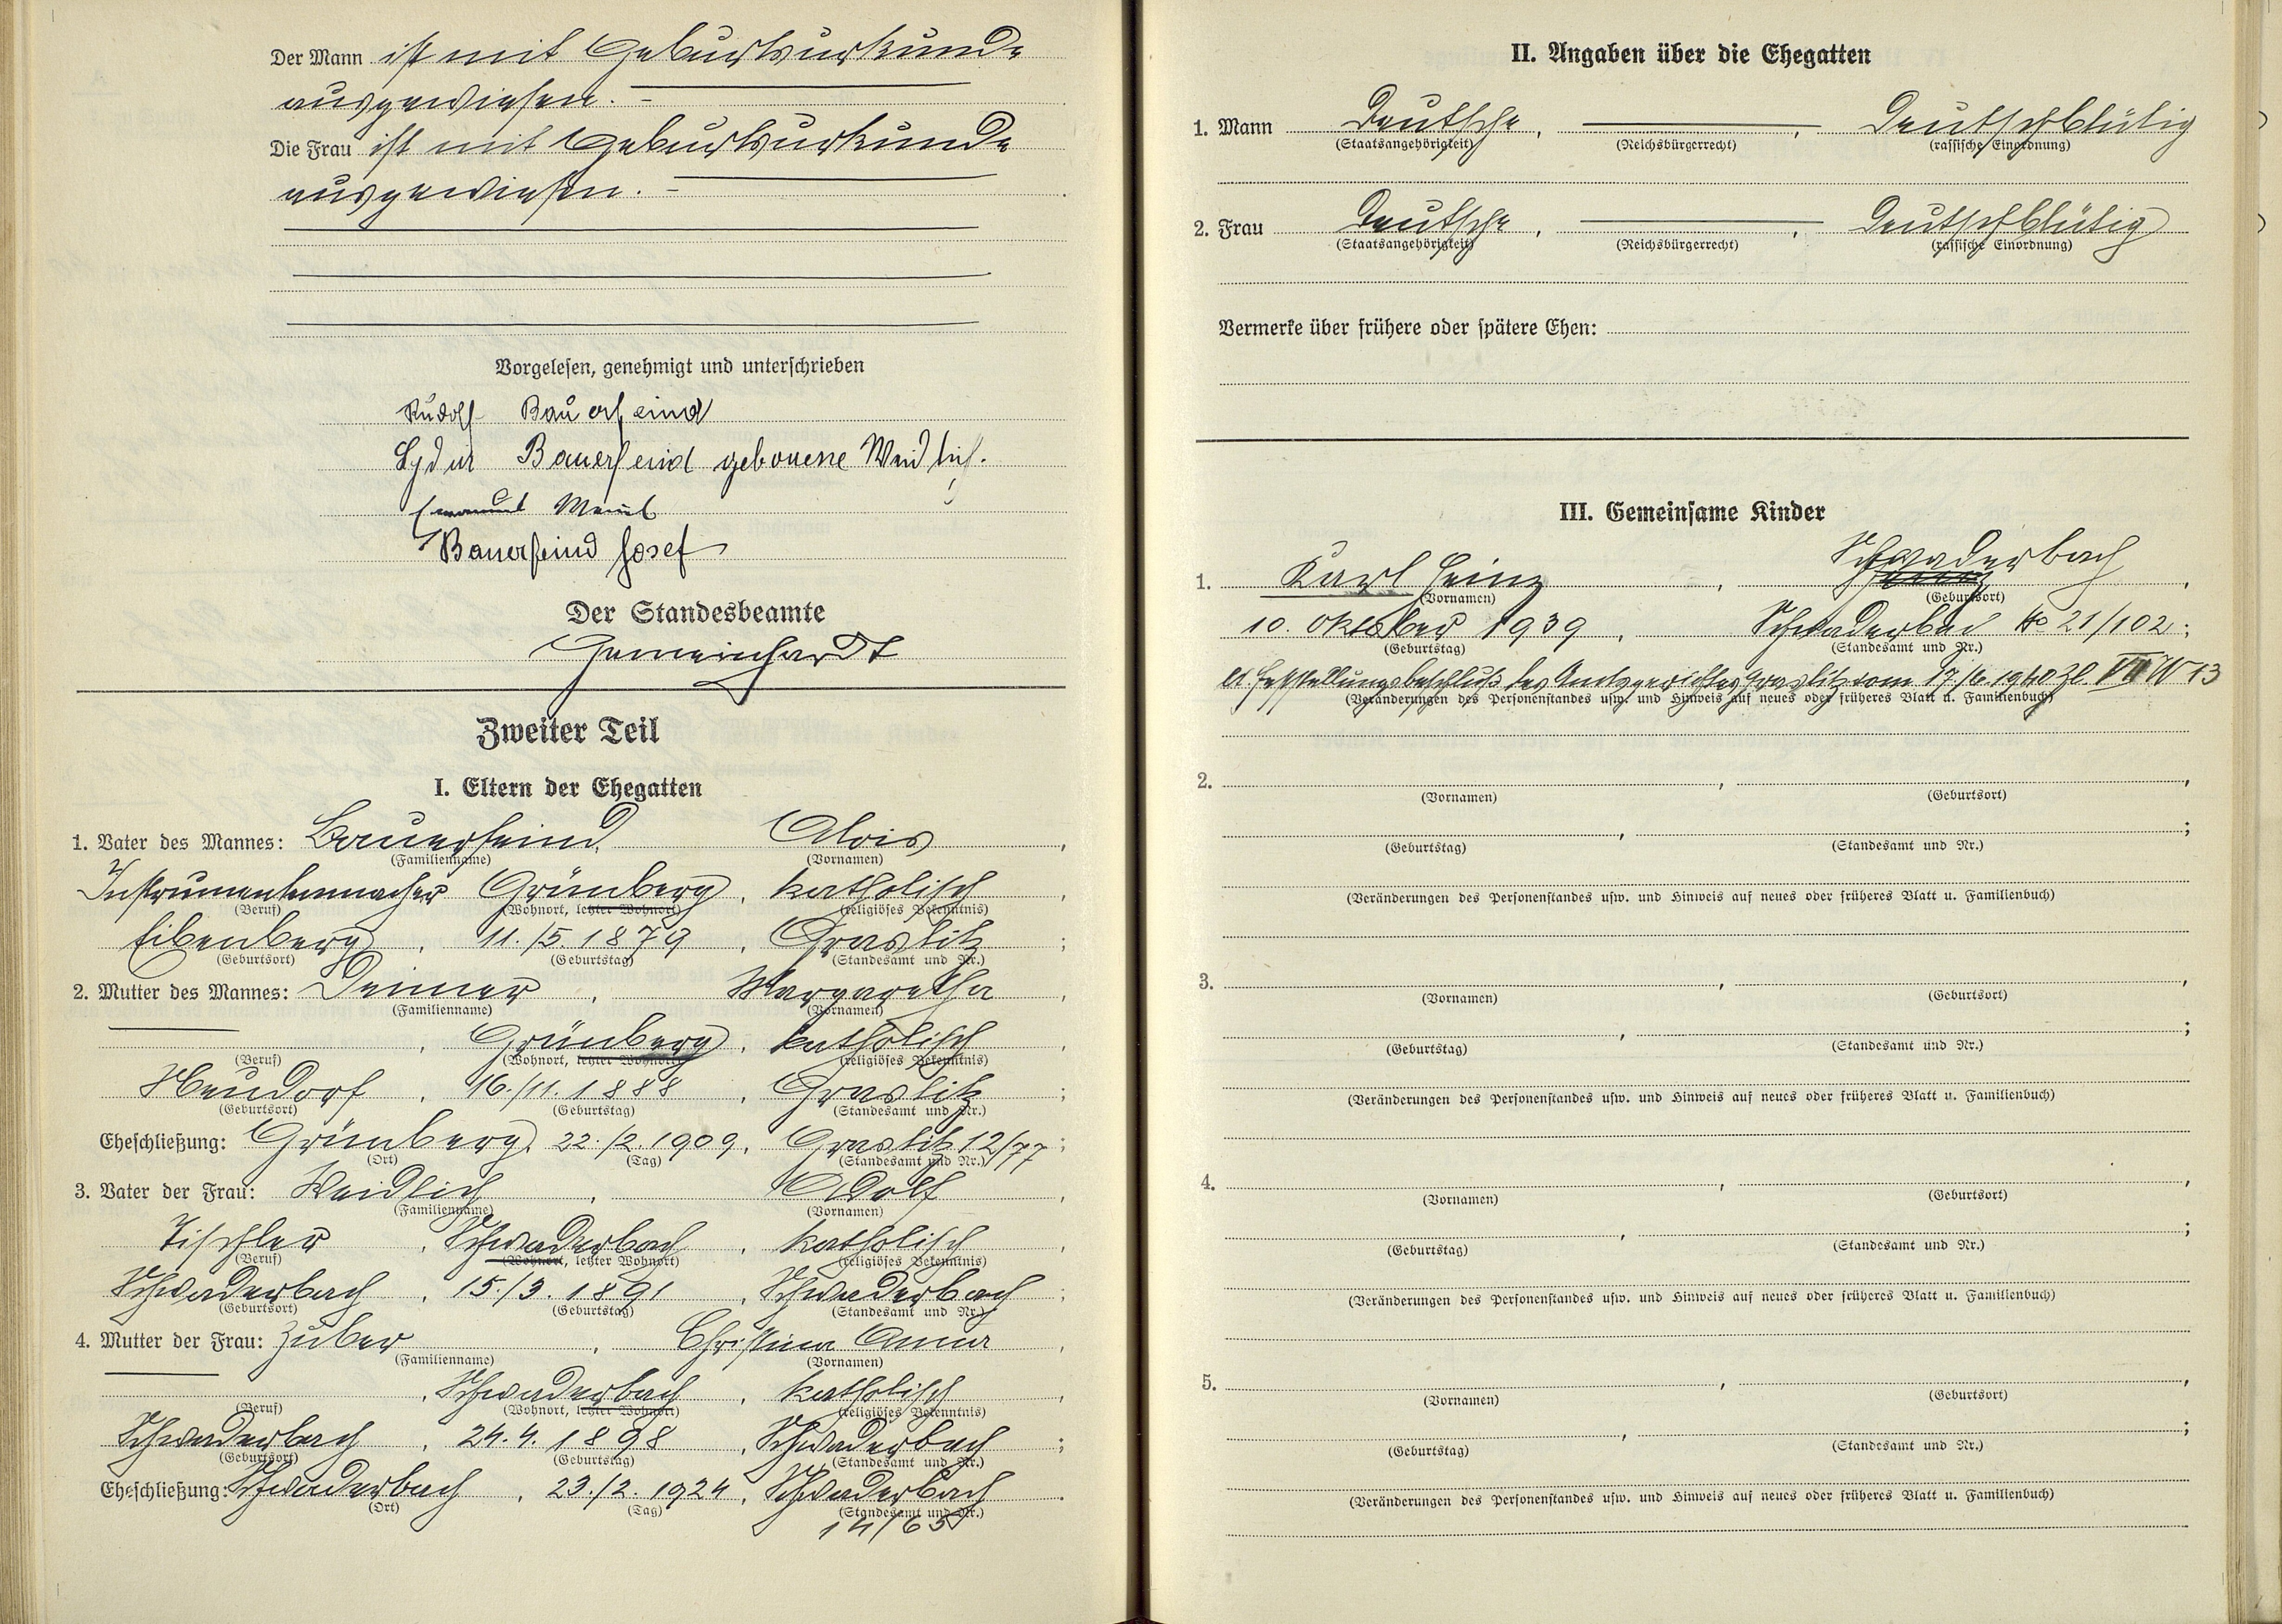 Der Mann ist mit Geburtsurkunde
ausgewiesen. –
Die Frau ist mit Geburtsurkunde
ausgewiesen. –
Vorgelesen, genehmigt und unterschrieben
Rudolf Bauerfeind
Lydia Bauerfeind geborene Weidlich.
Bauerfeind Josef
Der Standesbeamte
Gemeinhardt
Zweiter Teil
I. Eltern der Ehegatten
1. Vater des Mannes: Bauerfeind, Alois,
(Familienname) (Vornamen)
Instrumentenmacher Grünberg, katholisch,
(Beruf) (Wohnort, letzter Wohnort) (religiöses Bekenntnis)
Eibenberg, 11./5. 1879, Graslitz;
(Geburtsort) (Geburtstag) (Standesamt und Nr.)
2. Mutter des Mannes: Deimer, Margaretha,
(Familienname) (Vornamen)
, Grünberg, katholisch,
(Beruf) (Wohnort, letzter Wohnort) (religiöses Bekenntnis)
Neudorf, 16./11. 1888, Graslitz;
(Geburtsort) (Geburtstag) (Standesamt und Nr.)
Eheschließung: Grünberg, 22./2. 1909, Graslitz 12/77;
(Ort) (Tag) (Standesamt und Nr.)
3. Vater der Frau: Weidlich, Adolf,
(Familienname) (Vornamen)
Tischler, Schwaderbach, katholisch,
(Beruf) (Wohnort, letzter Wohnort) (religiöses Bekenntnis)
Schwaderbach, 15./3. 1891, Schwaderbach;
(Geburtsort) (Geburtstag) (Standesamt und Nr.)
4. Mutter der Frau: Zuber, Christina Anna,
(Familienname) (Vornamen)
, Schwaderbach, katholisch,
(Beruf) (Wohnort, letzter Wohnort) (religiöses Bekenntnis)
Schwaderbach, 24.4. 1898, Schwaderbach;
(Geburtsort) (Geburtstag) (Standesamt und Nr.)
Eheschließung: Schwaderbach, 23./2. 1924, Schwaderbach.
(Ort) (Tag) (Standesamt und Nr.)
II. Angaben über die Ehegatten
1. Mann Deutsche, , Deutschblütig
(Staatsangehörigkeit) (Reichsbürgerrecht) (rassische Einordnung)
2. Frau Deutsche, , Deutschblütig
(Staatsangehörigkeit) (Reichsbürgerrecht) (rassische Einordnung)
Vermerke über frühere oder spätere Ehen:
III. Gemeinsame Kinder
1. Karl Heinz, Schwaderbach,
(Vornamen) (Geburtsort)
10. Oktober 1939, Schwaderbach No 21/102;
(Geburtstag) (Standesamt und Nr.)
lt. Feststellungsbeschluß des Amtsgerichtes Graslitz vom 17./6. 1940 Zl. VII W 13
(Veränderungen des Personenstandes usw. und Hinweis auf neues oder früheres Blatt u. Familienbuch)
2. , ,
(Vornamen) (Geburtsort)
, ;
(Geburtstag) (Standesamt und Nr.)
(Veränderungen des Personenstandes usw. und Hinweis auf neues oder früheres Blatt u. Familienbuch)
3. , ,
(Vornamen) (Geburtsort)
, ;
(Geburtstag) (Standesamt und Nr.)
(Veränderungen des Personenstandes usw. und Hinweis auf neues oder früheres Blatt u. Familienbuch)
4. , ,
(Vornamen) (Geburtsort)
, ;
(Geburtstag) (Standesamt und Nr.)
(Veränderungen des Personenstandes usw. und Hinweis auf neues oder früheres Blatt u. Familienbuch)
5. , ,
(Vornamen) (Geburtsort)
, ;
(Geburtstag) (Standesamt und Nr.)
(Veränderungen des Personenstandes usw. und Hinweis auf neues oder früheres Blatt u. Familienbuch)